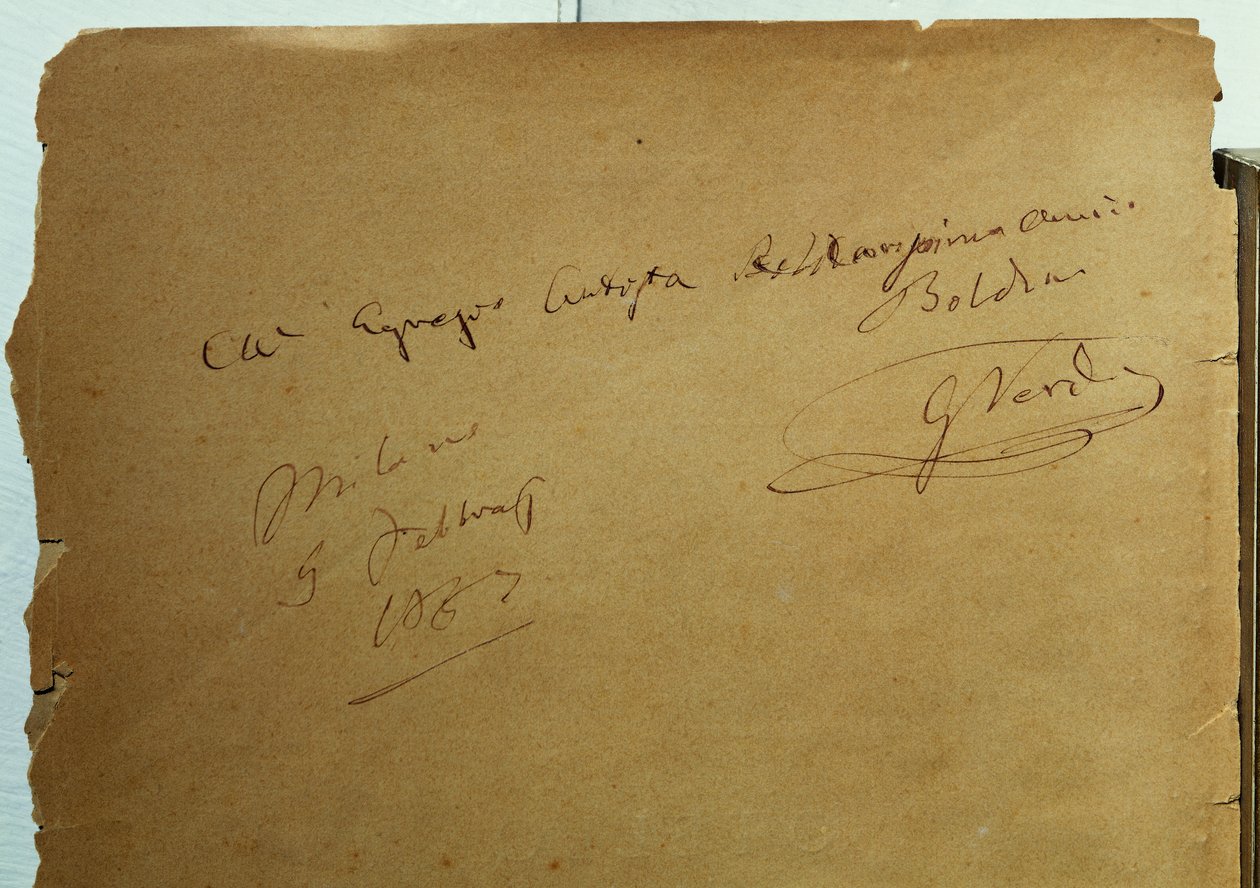 All' Egregio Artista
Boldini
G Verdi
Milano
9 Febbraj
1887